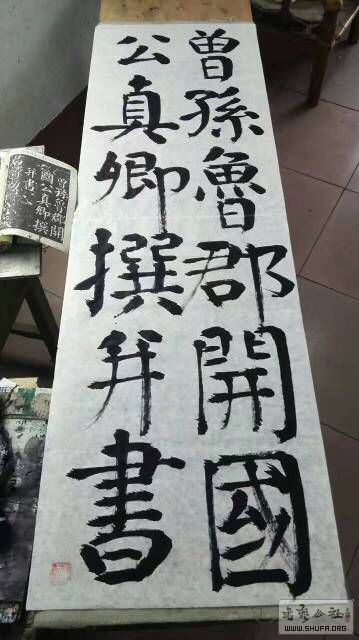 曾孫魯郡開國
公真卿撰并書
曾孫魯郡開
國公真卿撰
并書
WWW.SHUFA.ORG